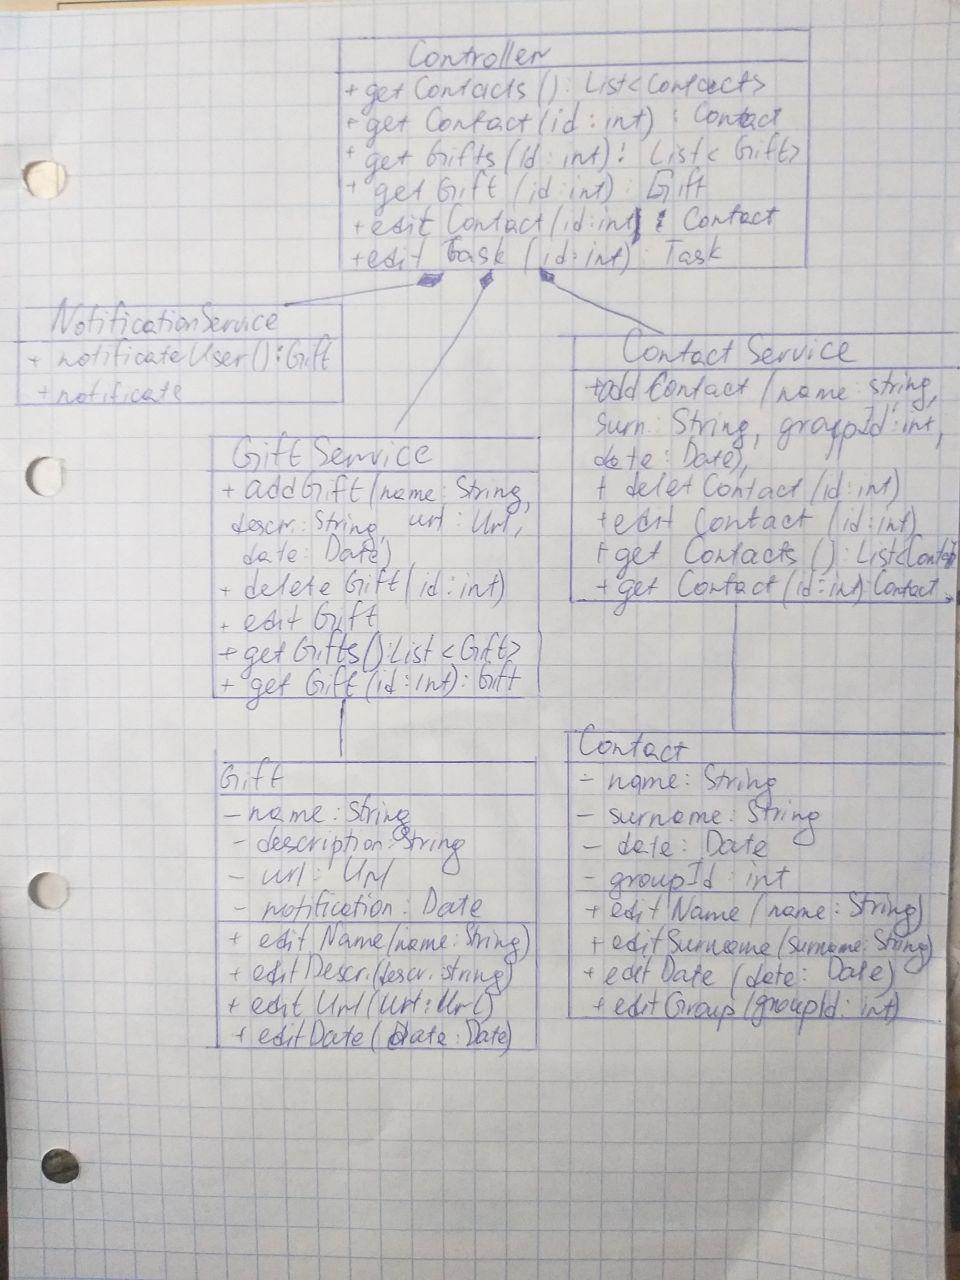 Controller
+ getContacts(): List<Contacts>
+ get Contact(id: int): Contact
+ get Gifts(id: int): List<Gift>
+ get Gift (id: int): Gift
+ edit Contact(id: int): Contact
+ edit Task (id: int): Task
NotificationService
+ notificateUser(): Gift
+ notificate
Contact Service
+add Contact (name: string,
surn.: String, groupId: int,
date: Date),
+ delet Contact(id: int)
+ edit Contact (id: int)
+ get Contacts (): List<Contact
+ get Contact(id: int) Contact
Gift Service
+ addGift(name: String,
descr: String, url: Url,
date: Date)
+ delete Gift(id: int)
+ edit Gift
+ getGifts(): List<Gift>
+ get Gift(id: int): Gift
Gift
- name: String
- description: String
- url: Url
- notification: Date
+ edit Name(name: String)
+ edit Descr.(descr.: string)
+ edit Url(Url: Url)
+ editDate(date: Date)
Contact
- name: String
- surname: String
- date: Date
- groupId: int
+ edit Name (name: String)
+ editSurname(surname: String)
+ edit Date (date: Date)
+ editGroup(groupId: int)